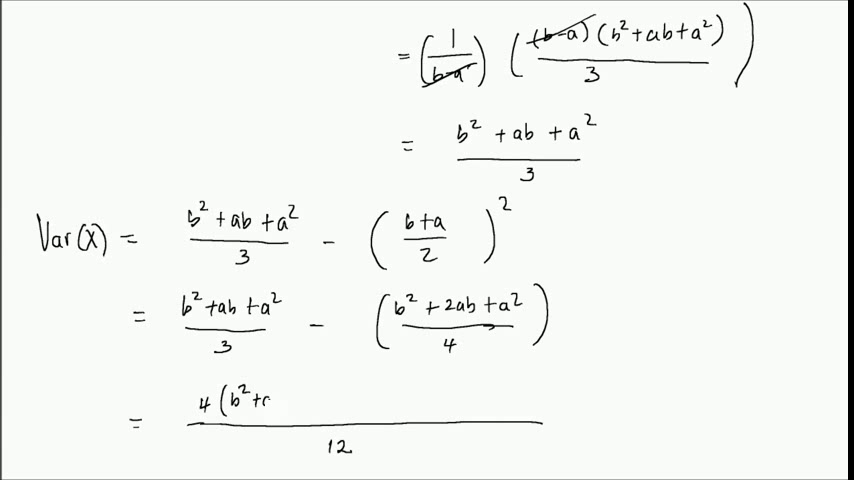 = (1/(b-a)) ((b-a)(b²+ab+a²)/3)
= (b² + ab + a²)/3
Var(X) = (b² + ab + a²)/3 - ((b+a)/2)²
= (b² + ab + a²)/3 - ((b² + 2ab + a²)/4)
= 4(b² +
12